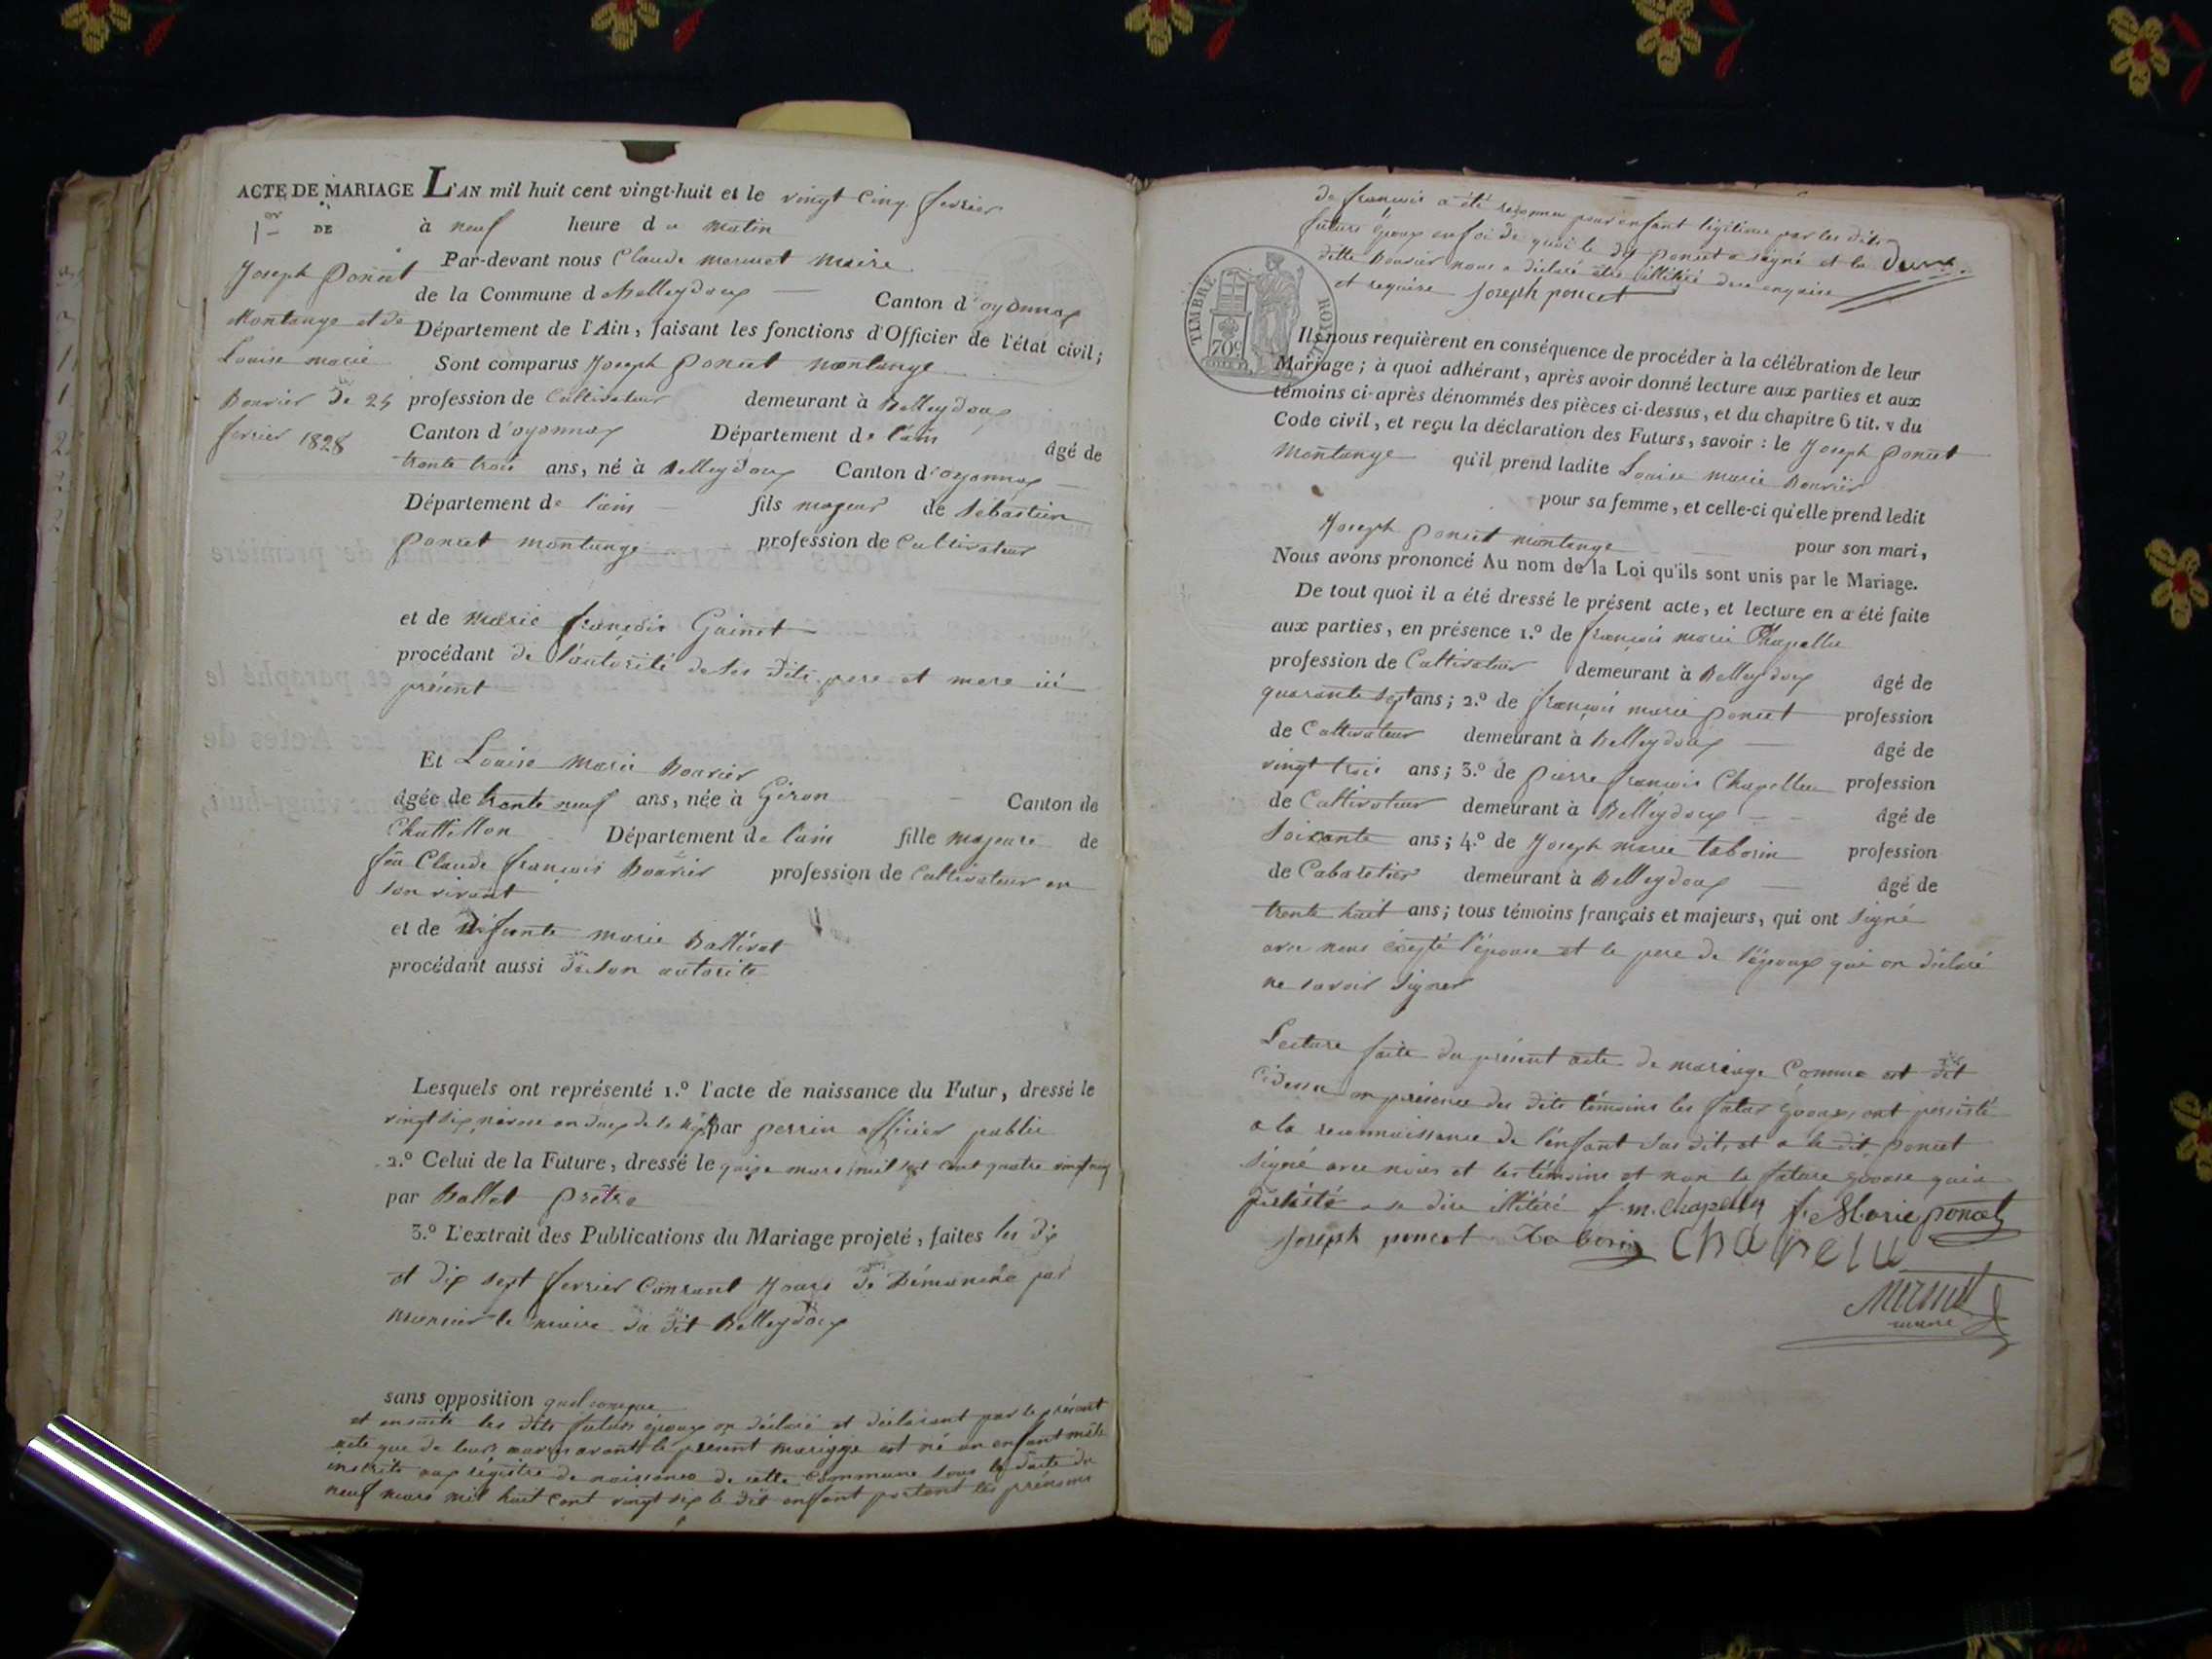 ACTE DE MARIAGE
1er DE
Joseph Poncet
Montange et de
Louise marie
Bouvier du 25
fevrier 1828
L'AN mil huit cent vingt-huit et le vingt cinq fevrier
à neuf heure du matin
Par-devant nous Claude mermet Maire
de la Commune de Belleydoux Canton d'oyonnax
Département de l'Ain, faisant les fonctions d'Officier de l'état civil;
Sont comparus Joseph Poncet montange
profession de Cultivateur demeurant à Belleydoux
Canton d'oyonnax Département de l'ain âgé de
trente trois ans, né à Belleydoux Canton d'oyonnax
Département de l'ain fils majeur de Sébastien
poncet montange profession de Cultivateur
et de marie françoise Gainet
procédant de l'autorité de ses dits pere et mere ici
présent
Et Louise Marie Bouvier
âgée de trente neuf ans, née à Giron Canton de
Chattillon Département de l'ain fille majeure de
feu Claude françois Bouvier profession de Cultivateur en
son vivant
et de défunte marie Ballivet
procédant aussi de son autorité
Lesquels ont représenté 1.º l'acte de naissance du Futur, dressé le
vingt six nivose an deux de la rép par perrin officier public
2.º Celui de la Future, dressé le quinze mars mil sept cent quatre vingt neuf
par Ballet prêtre
3.º L'extrait des Publications du Mariage projeté, faites les dix
et dix sept fevrier Courant Jours de Dimanche par
monsieur le maire du dit Belleydoux
sans opposition quelconque
et ensuite les dits futurs époux on déclaré et déclarent par le présent
acte que de leurs œuvres avant le present mariage est né un enfant mâle
inscrits aux régistre de naissance de cette Commune sous la date du
neuf mars mil huit cent vingt six le dit enfant portant les prénoms
de françois a été reconnu pour enfant légitime par les dits
future époux en foi de quoi le dit poncet a signé et la
ditte Bouvier nous a déclaré être illitéré de ce enquise
et requise Joseph poncet
TIMBRE ROYAL
70c
Ils nous requièrent en conséquence de procéder à la célébration de leur
Mariage; à quoi adhérant, après avoir donné lecture aux parties et aux
témoins ci-après dénommés des pièces ci-dessus, et du chapitre 6 tit. v du
Code civil, et reçu la déclaration des Futurs, savoir: le Joseph poncet
Montange qu'il prend ladite Louise marie Bouvier
pour sa femme, et celle-ci qu'elle prend ledit
Joseph poncet montange pour son mari,
Nous avons prononcé Au nom de la Loi qu'ils sont unis par le Mariage.
De tout quoi il a été dressé le présent acte, et lecture en a été faite
aux parties, en présence 1.º de françois marie Chapellu
profession de Cultivateur demeurant à Belleydoux âgé de
quarante sept ans; 2.º de françois marie poncet profession
de Cultivateur demeurant à Belleydoux âgé de
vingt trois ans; 3.º de pierre françois Chapellu profession
de Cultivateur demeurant à Belleydoux âgé de
soixante ans; 4.º de Joseph marie taborin profession
de Cabaretier demeurant à Belleydoux âgé de
trente huit ans; tous témoins français et majeurs, qui ont signé
avec nous exepté l'épouse et le pere de l'époux qui on déclaré
ne savoir signer
Lecture faite du présent acte de mariage Comme est dit
cidessu en présence des dits témoins les futur époux, ont persisté
a la reconnaissance de l'enfant sus dit, et a le dit poncet
signé avec nous et les témoins et non la future epouse qui a
persisté a se dire illitéré f. m. Chapellu f. Marie poncet
Joseph poncet Taborin Chapelu
Mermet
maire